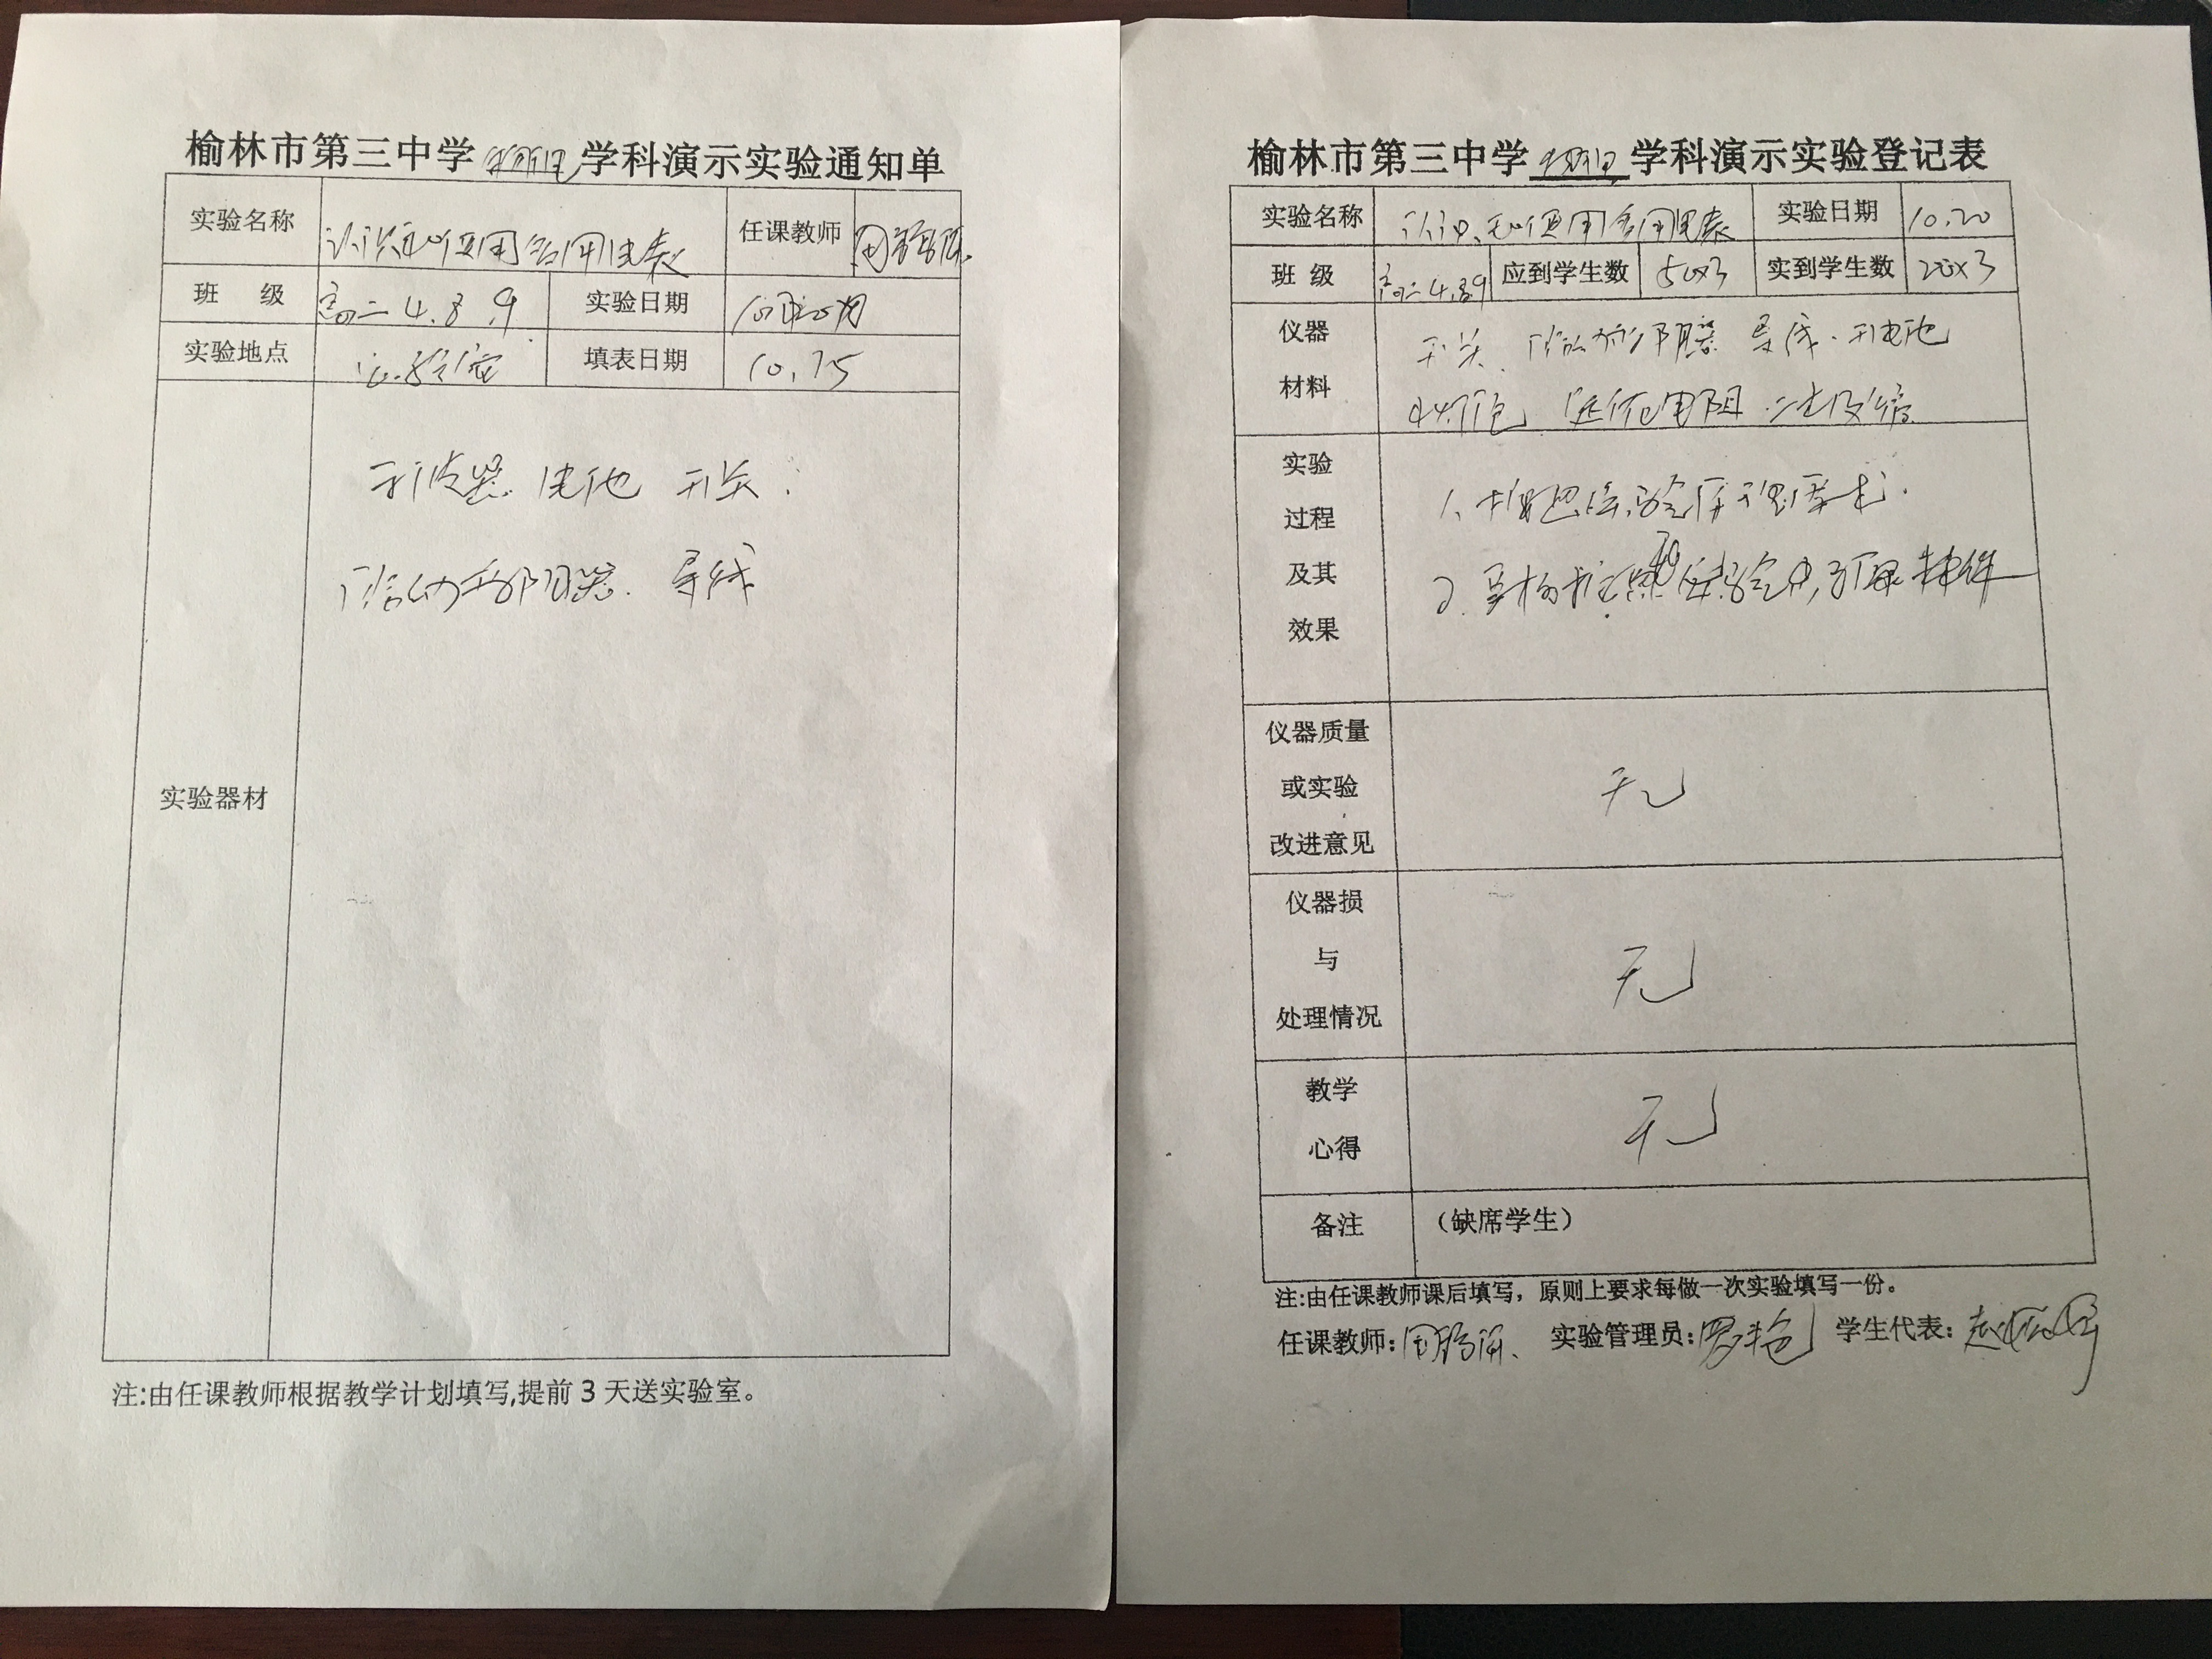 榆林市第三中学物理学科演示实验通知单
实验名称 认识和使用多用电表 任课教师
班 级 高二 4.8 9 实验日期 10月20日
实验地点 实验室 填表日期 10.15
实验器材
电池 开关
滑动变阻器 导线
注:由任课教师根据教学计划填写,提前3天送实验室。
榆林市第三中学物理学科演示实验登记表
实验名称 认识和使用多用电表 实验日期 10.20
班 级 高二4.8.9 应到学生数 50×3 实到学生数 20×3
仪器
材料
开关 滑动变阻器 导线 电池
小灯泡 定值电阻 二极管
实验
过程
及其
效果
1、
2、
仪器质量
或实验
改进意见
无
仪器损
与
处理情况
无
教学
心得
无
备注 （缺席学生）
注:由任课教师课后填写，原则上要求每做一次实验填写一份。
任课教师: 实验管理员: 学生代表: